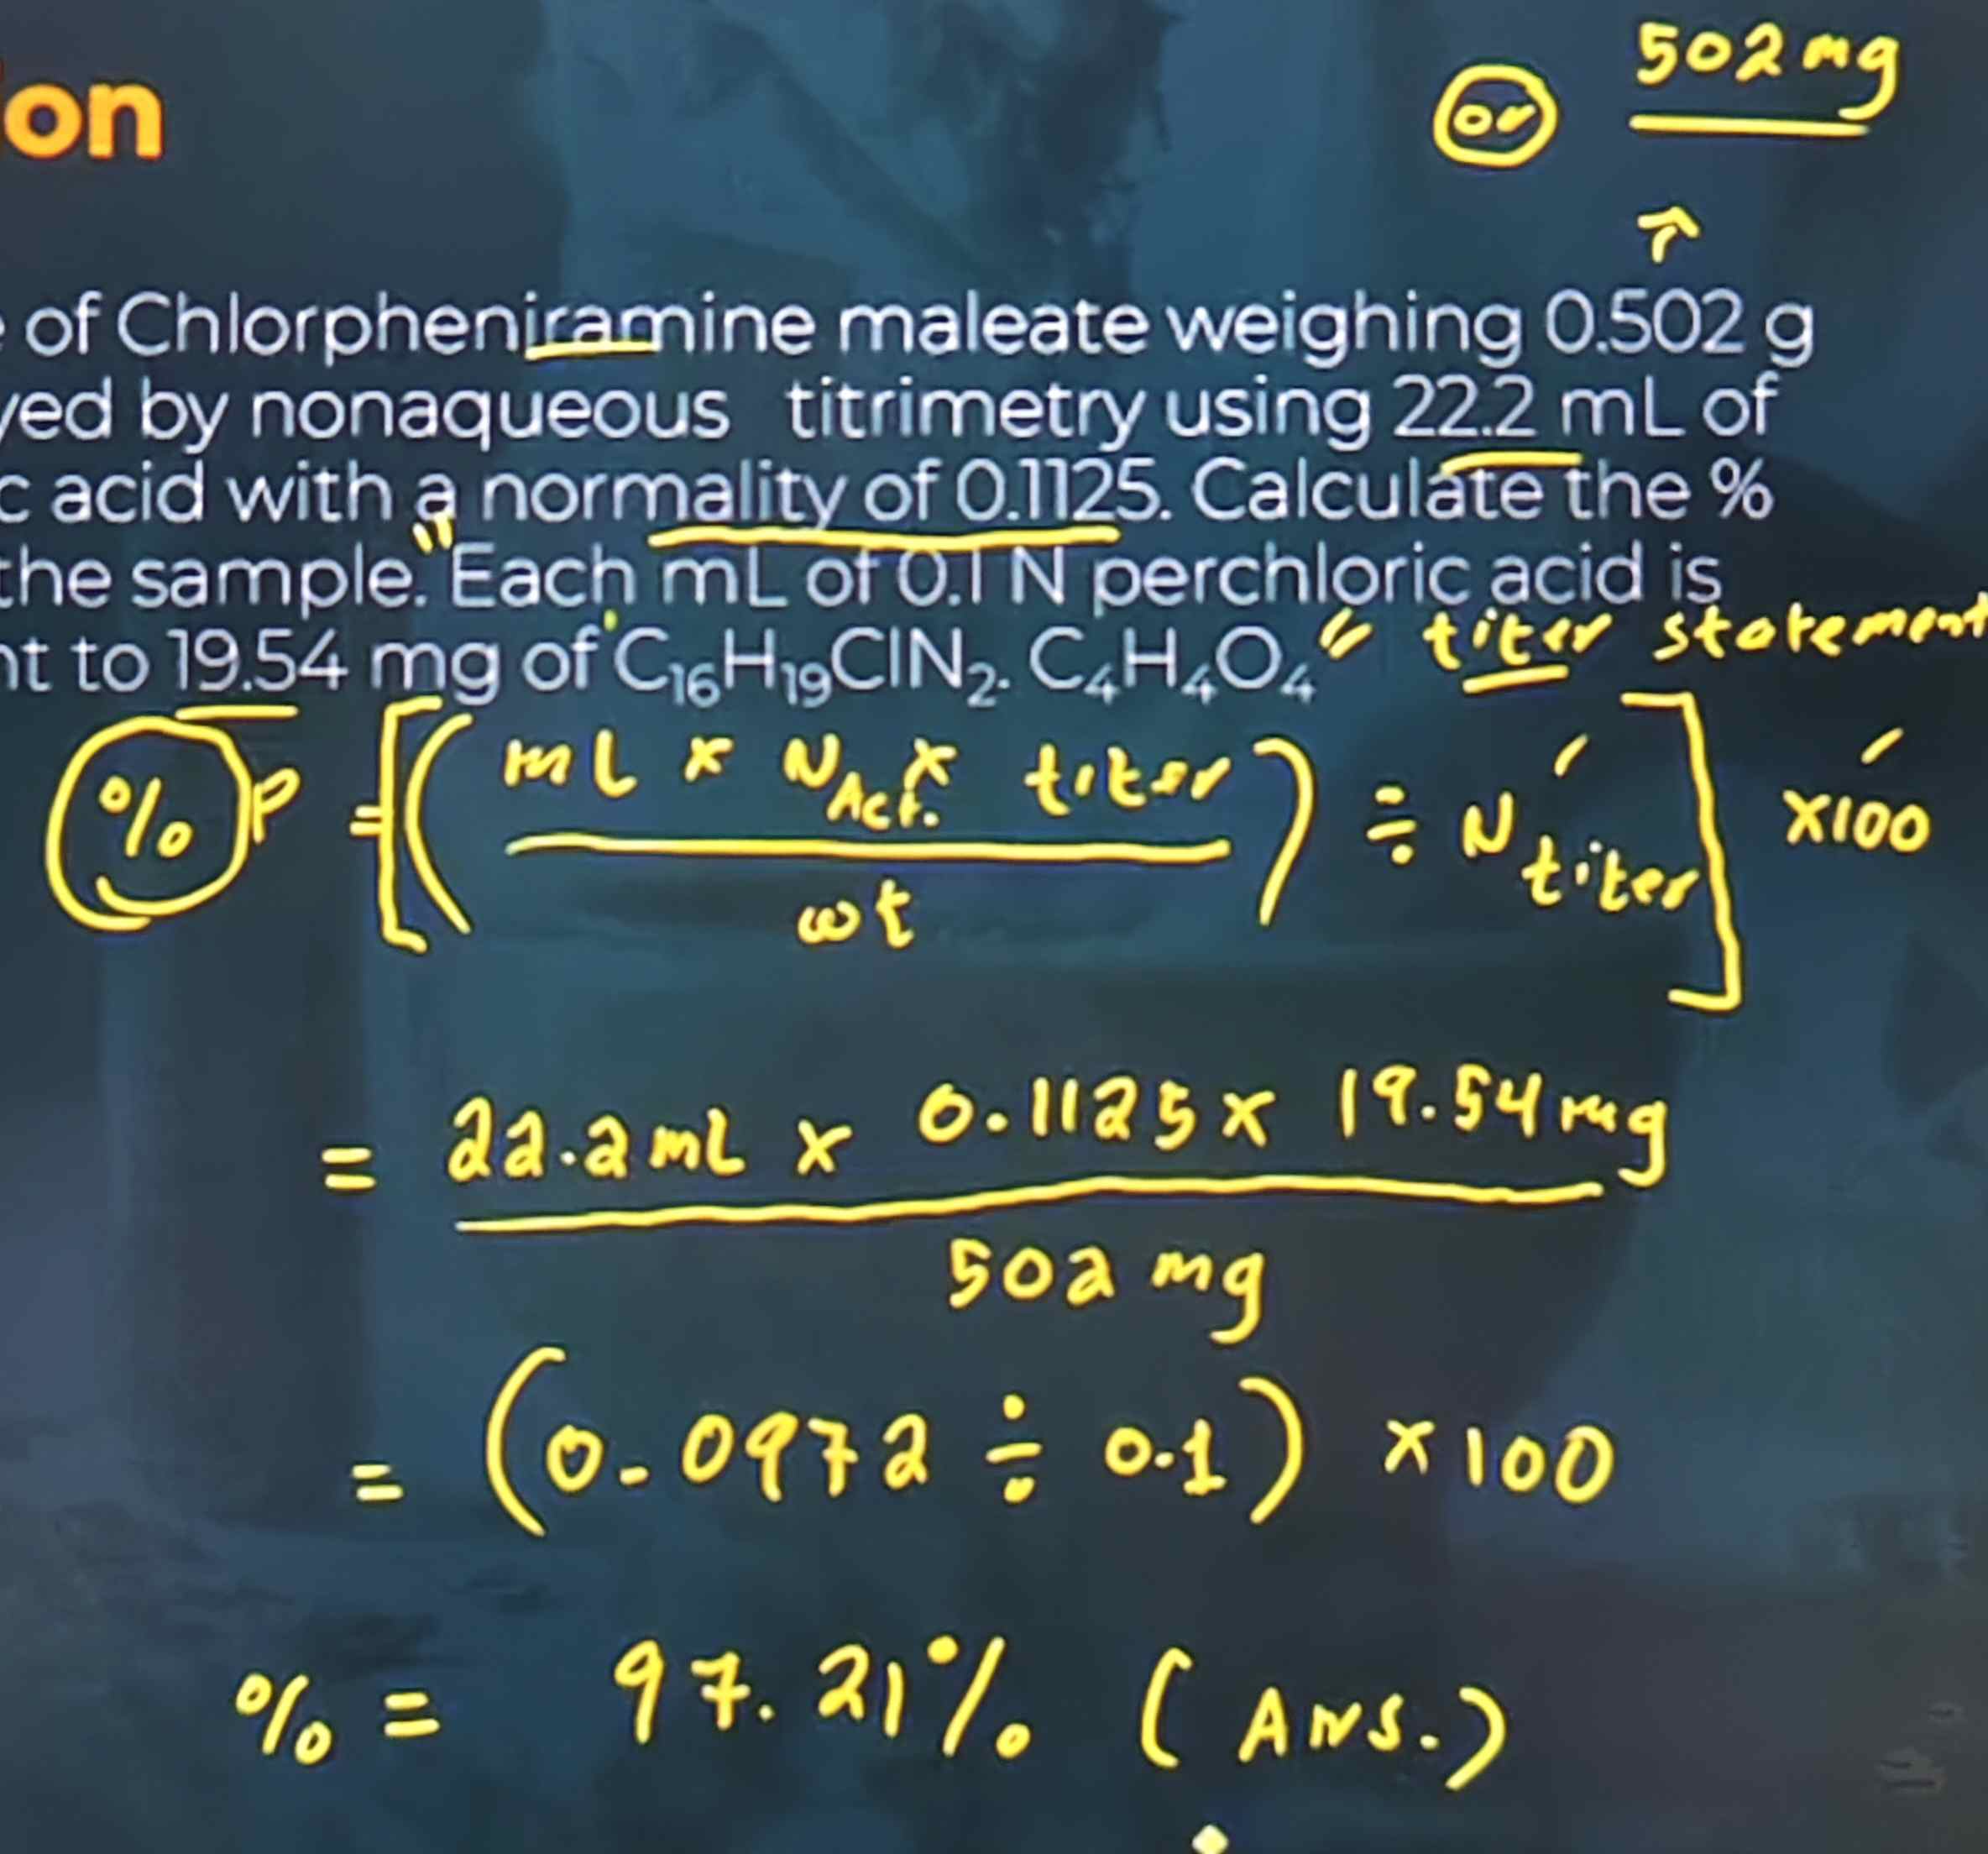 on
or 502 mg
of Chlorpheniramine maleate weighing 0.502 g
yed by nonaqueous titrimetry using 22.2 mL of
c acid with a normality of 0.1125. Calculate the %
the sample. "Each mL of 0.1 N perchloric acid is
nt to 19.54 mg of C₁₆H₁₉ClN₂. C₄H₄O₄" titer statement
%P = [(mL x N Act. x titer / wt) ÷ N titer] x100
= 22.2 mL x 0.1125 x 19.54 mg
502 mg
= (0.0972 ÷ 0.1) x 100
% = 97.21% (ANS.)